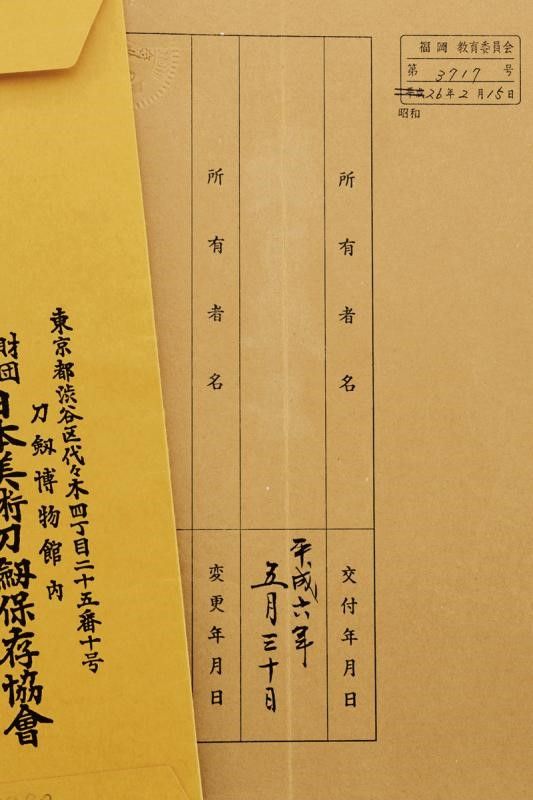 福岡 教育委員会
第 3717 号
平成 26年2月15日
昭和
所有者名
交付年月日
平成六年
五月三十日
所有者名
変更年月日
東京都渋谷区代々木四丁目二十五番十号
刀剱博物館内
財団
日本美術刀剱保存協會